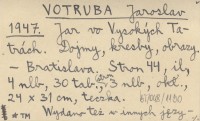 VOTRUBA Jaroslav
1947. Jar vo Vysokých Ta-
trách. Dojmy, kresby, obrazy.
– Bratislava. Stron 44, il,
4 nlb, 30 tab., 3 nlb, okł.,
24 x 31 cm, teczka.
* TM Wydano też w innych języ-